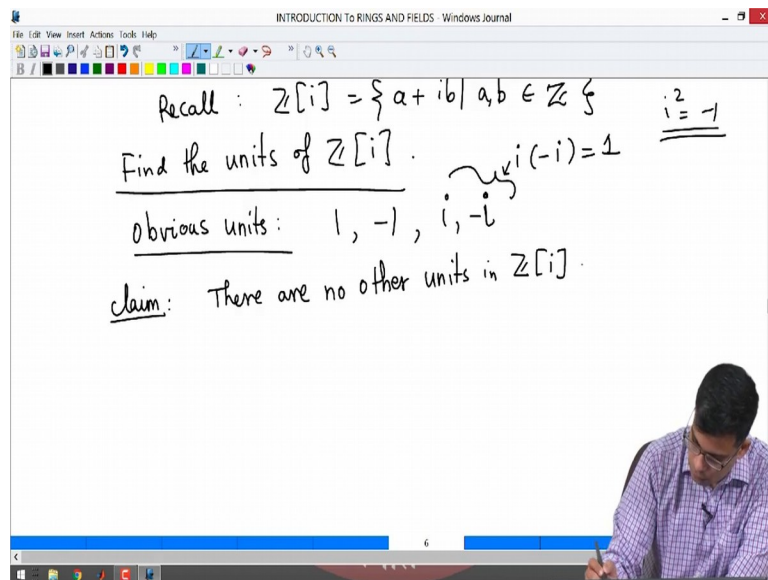 INTRODUCTION To RINGS AND FIELDS - Windows Journal
File Edit View Insert Actions Tools Help
B I
Recall : ℤ[i] = { a + ib | a,b ∈ ℤ }
i² = -1
Find the units of ℤ[i] .
i (-i) = 1
obvious units : 1 , -1 , i, -i
claim : There are no other units in ℤ[i] .
6